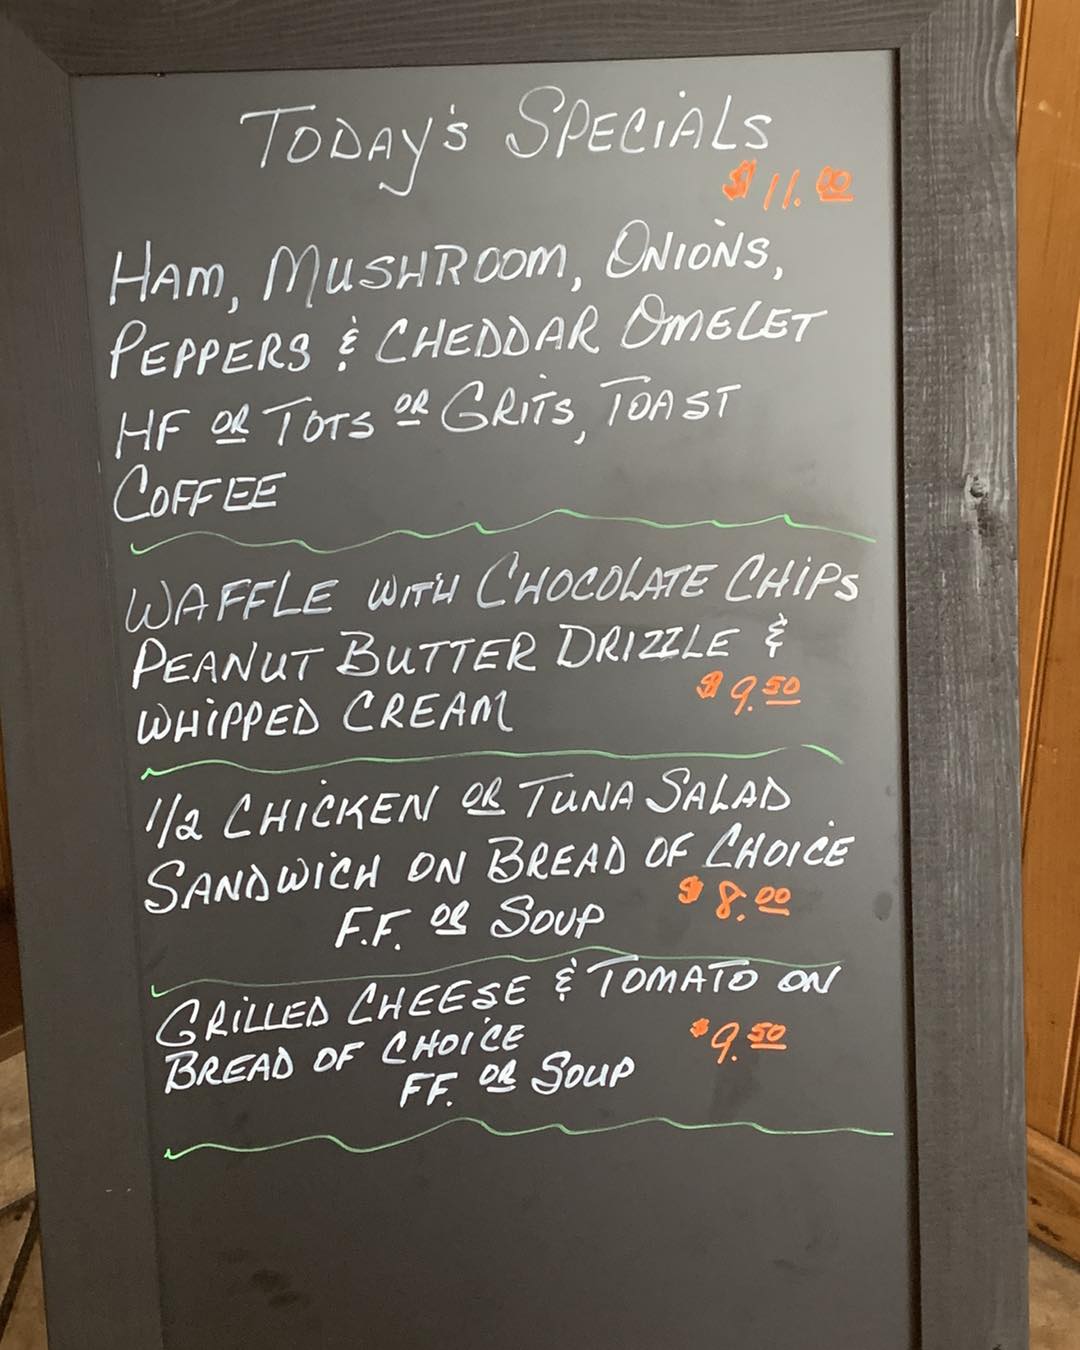 TODAY'S SPECIALS
$11.00
HAM, MUSHROOM, ONIONS,
PEPPERS & CHEDDAR OMELET
HF OR TOTS OR GRITS, TOAST
COFFEE
WAFFLE WITH CHOCOLATE CHIPS
PEANUT BUTTER DRIZZLE &
WHIPPED CREAM $9.50
1/2 CHICKEN OR TUNA SALAD
SANDWICH ON BREAD OF CHOICE
F.F. OR SOUP $8.00
GRILLED CHEESE & TOMATO ON
BREAD OF CHOICE $9.50
FF. OR SOUP